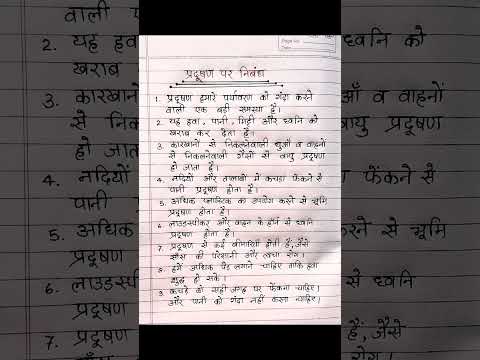 Page No.
Date
प्रदूषण पर निबंध
1. प्रदूषण हमारे पर्यावरण को गंदा करने
वाली एक बड़ी समस्या है।
2. यह हवा, पानी, मिट्टी और ध्वनि को
खराब कर देता है।
3. कारखानों से निकलनेवाली धुआँ व वाहनों
से निकलनेवाली गैसों से वायु प्रदूषण
हो जाता है।
4. नदियों और तालाबों में कचरा फेंकने से
पानी प्रदूषण होता है।
5. अधिक प्लास्टिक का उपयोग करने से भूमि
प्रदूषण होता है।
6. लाउडस्पीकर और वाहन के हॉर्न से ध्वनि
प्रदूषण होता है।
7. प्रदूषण से कई बीमारियाँ होती हैं, जैसे
साँस की परेशानी और त्वचा रोग।
8. हमें अधिक पेड़ लगाने चाहिए ताकि हवा
शुद्ध हो सके।
9. कचरे को सही जगह पर फेंकना चाहिए।
और पानी को गंदा नहीं करना चाहिए।
वाली एक
2. यह हवा
खराब
3. कारखानों
से निक
हो जाता
4. नदियों
पानी
5. अधिक
प्रदूषण
6. लाउडस्पी
प्रदूषण
7. प्रदूषण
ध्वनि को
आँ व वाहनों
वायु प्रदूषण
फेंकने से
करने से भूमि
से ध्वनि
हैं, जैसे
रोग।